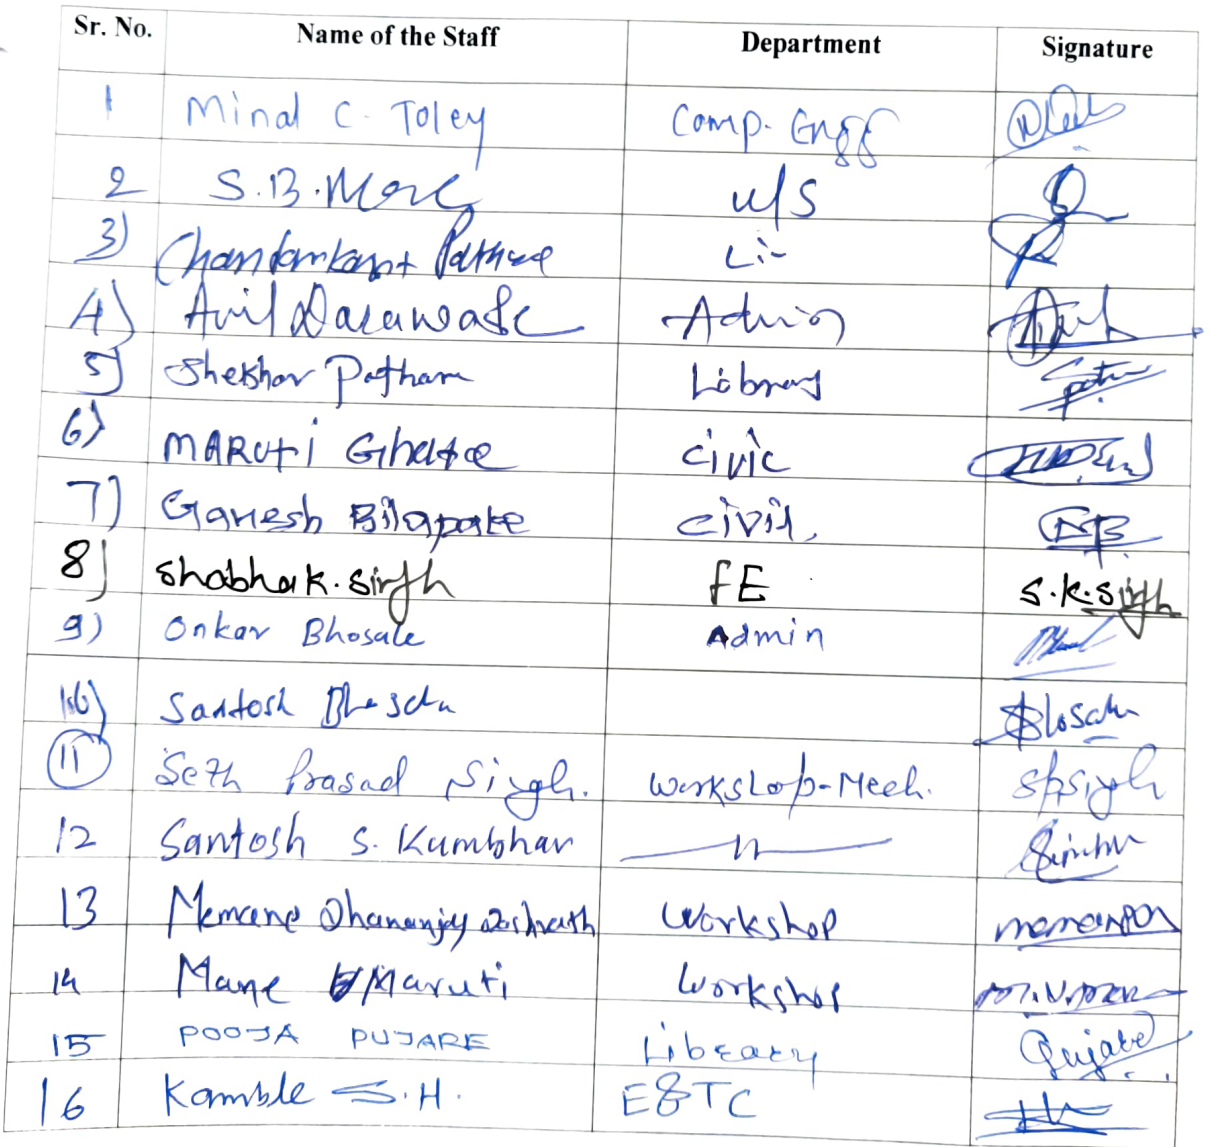 Sr. No. Name of the Staff Department Signature
1 Minal C. Toley Comp. Engg
2 S.B.More w/s
3) Chandrankant Pathare Li-
4) Anil Darawade Admin
5) Shekhar Pathare Library
6) MARUti Ghatge civic
7) Ganesh Bilapate civil,
8) Shobha k. singh FE S.K.Singh
9) Onkar Bhosale Admin
10) Santosh Bhosale Bhosale
11 Seth Prasad Singh. Workshop-Mech. Spsingh
12 Santosh S. Kumbhar —〃—
13 Memane Dhananjay Dashrath Workshop
14 Mane Maruti Workshop
15 POOJA PUJARE Library Pujare
16 Kamble S.H. E&TC